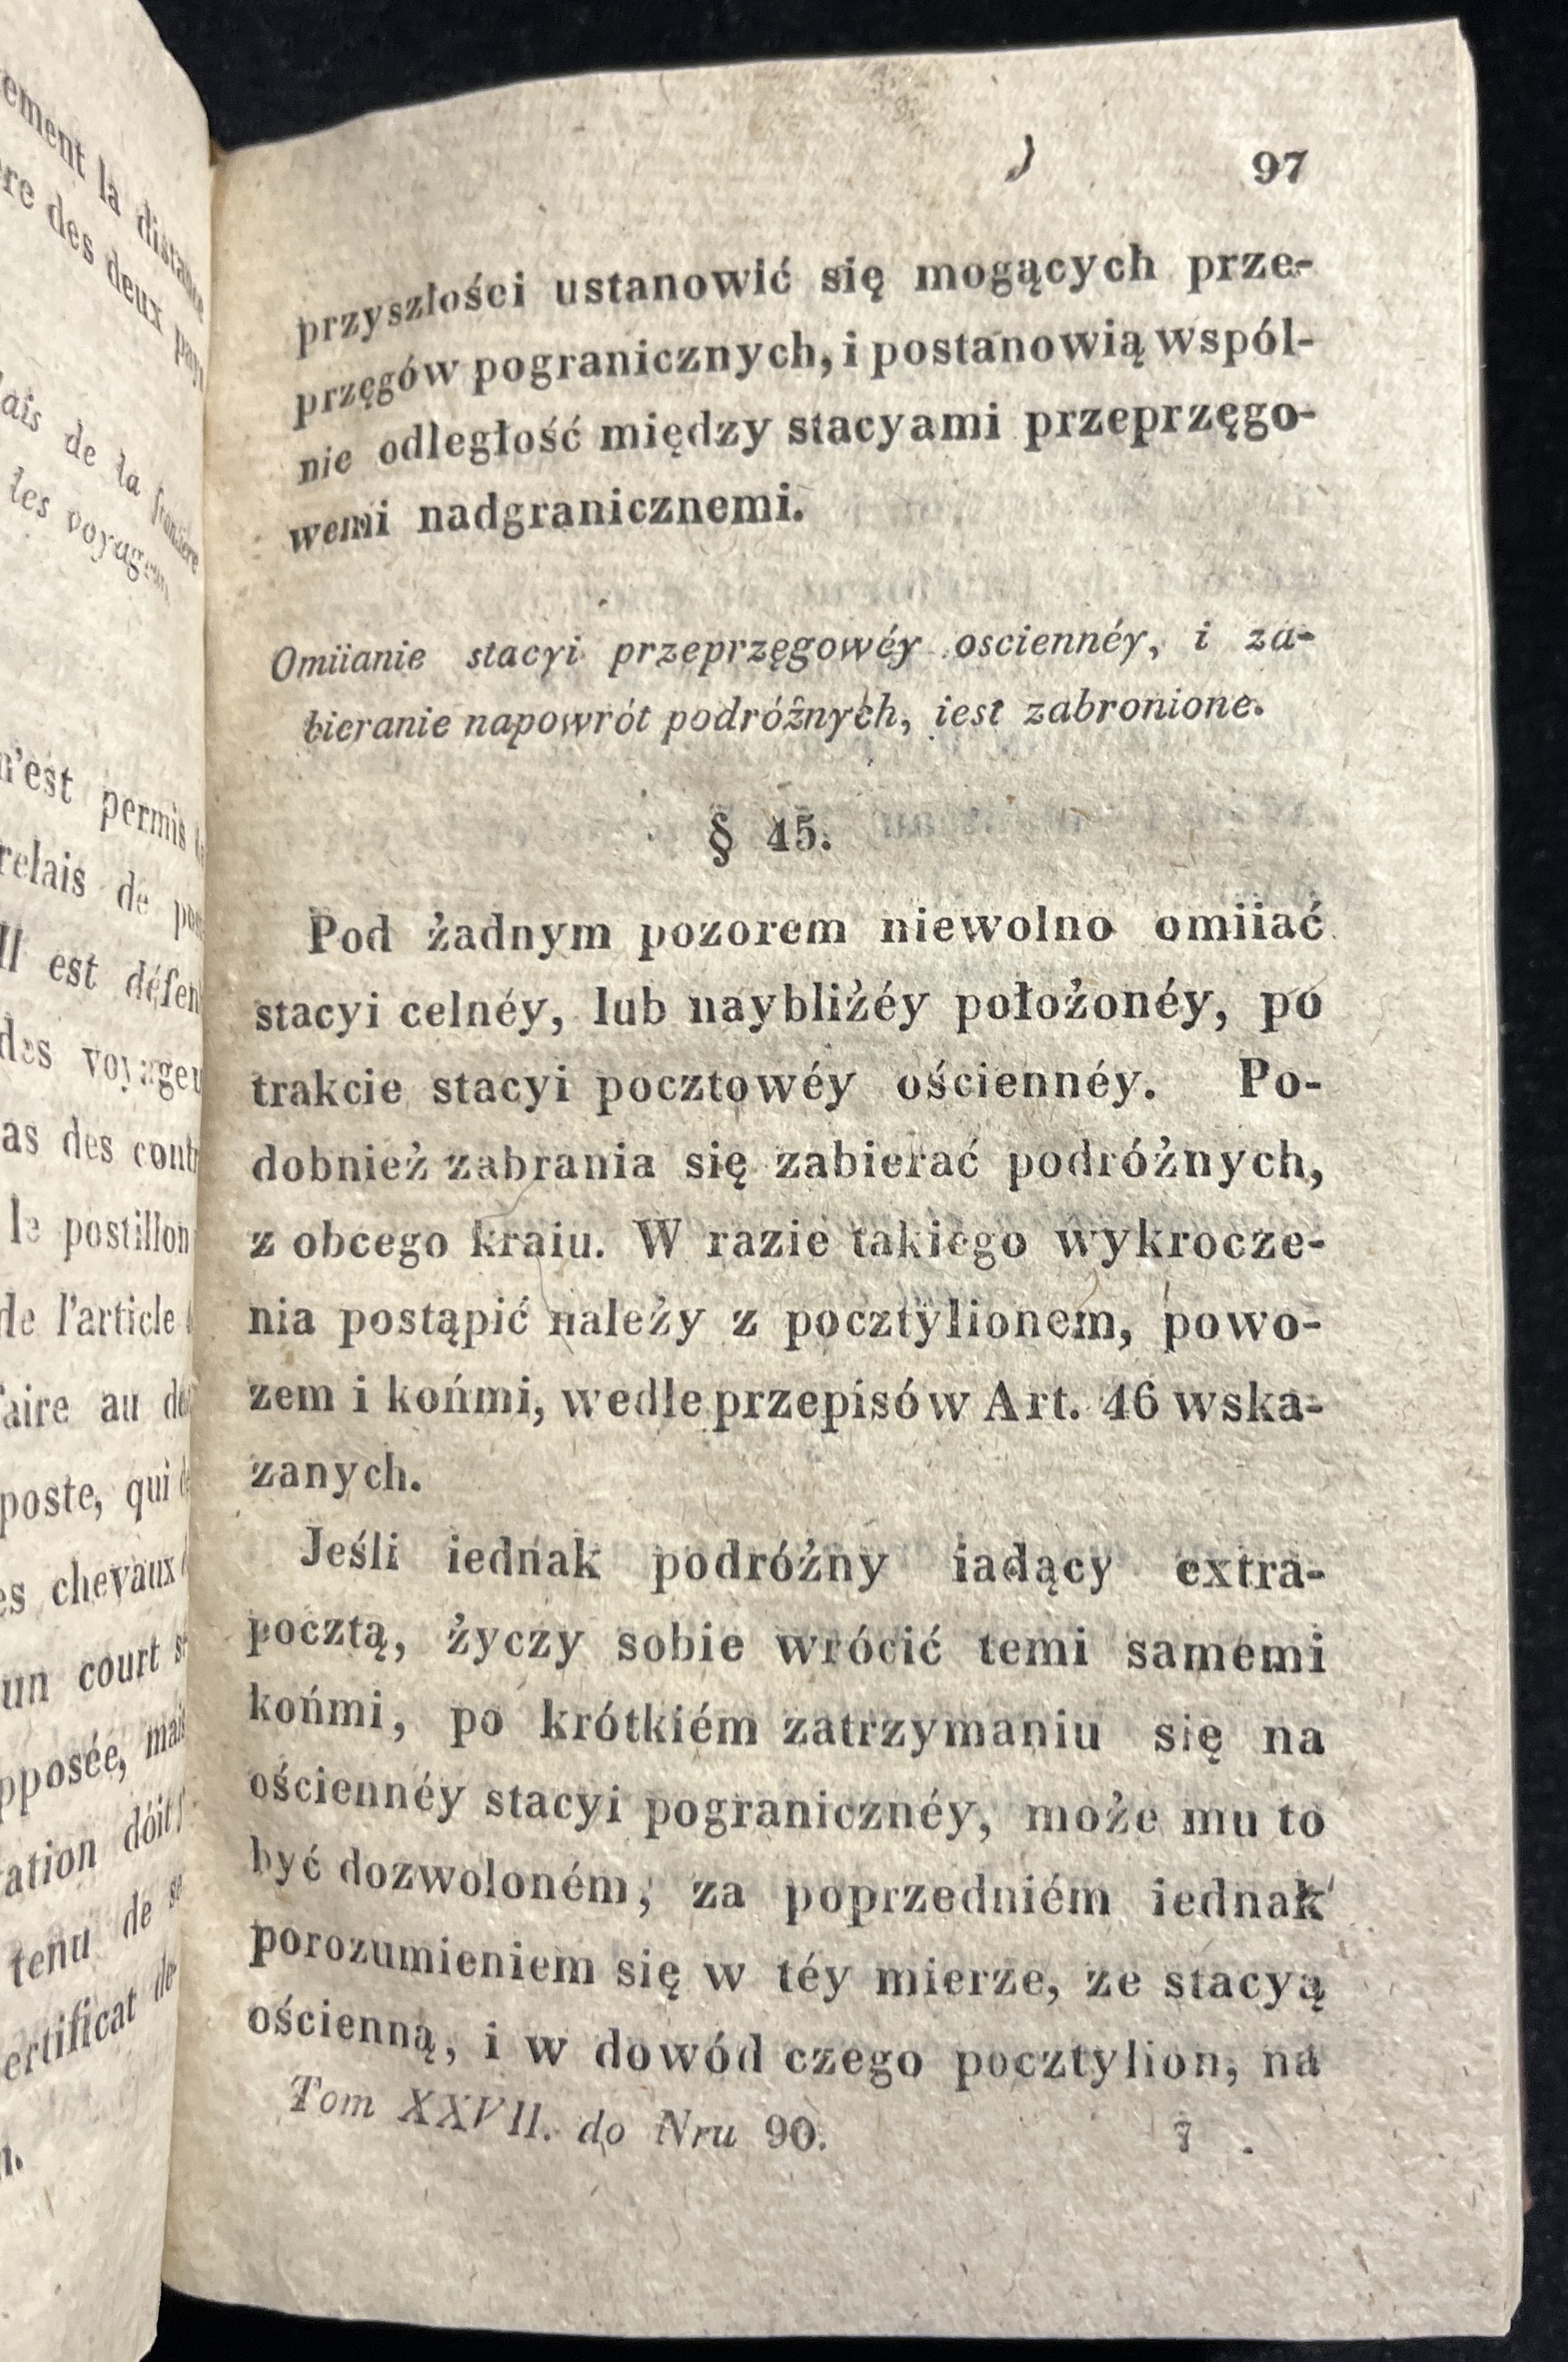 ement la distance
re des deux pays
ais de la frontière
les voyageurs
n'est permis
relais de
Il est défen
des voyageu
as des cont
le postillon
de l'article
faire au
poste, qui
es chevaux
un court
pposée, mais
ation dóit
tenu de
ertificat de
97
przyszłości ustanowić się mogących prze-
przęgów pogranicznych, i postanowią wspól-
nie odległość między stacyami przeprzęgo-
wemi nadgranicznemi.
Omiianie stacyi przeprzęgowéy osciennéy, i za-
bieranie napowrót podróżnych, iest zabronione.
§ 45.
Pod żadnym pozorem niewolno omiiać
stacyi celnéy, lub naybliżéy położonéy, po
trakcie stacyi pocztowéy ościennéy. Po-
dobnież zabrania się zabierać podróżnych,
z obcego kraiu. W razie takiego wykrocze-
nia postąpić należy z pocztylionem, powo-
zem i końmi, wedle przepisów Art. 46 wska-
zanych.
Jeśli iednak podróżny iadący extra-
pocztą, życzy sobie wrócić temi samemi
końmi, po krótkiém zatrzymaniu się na
ościennéy stacyi pogranicznéy, może mu to
być dozwoloném, za poprzedniém iednak
porozumieniem się w téy mierze, ze stacyą
ościenną, i w dowód czego pocztylion, na
Tom XXVII. do Nru 90. 7